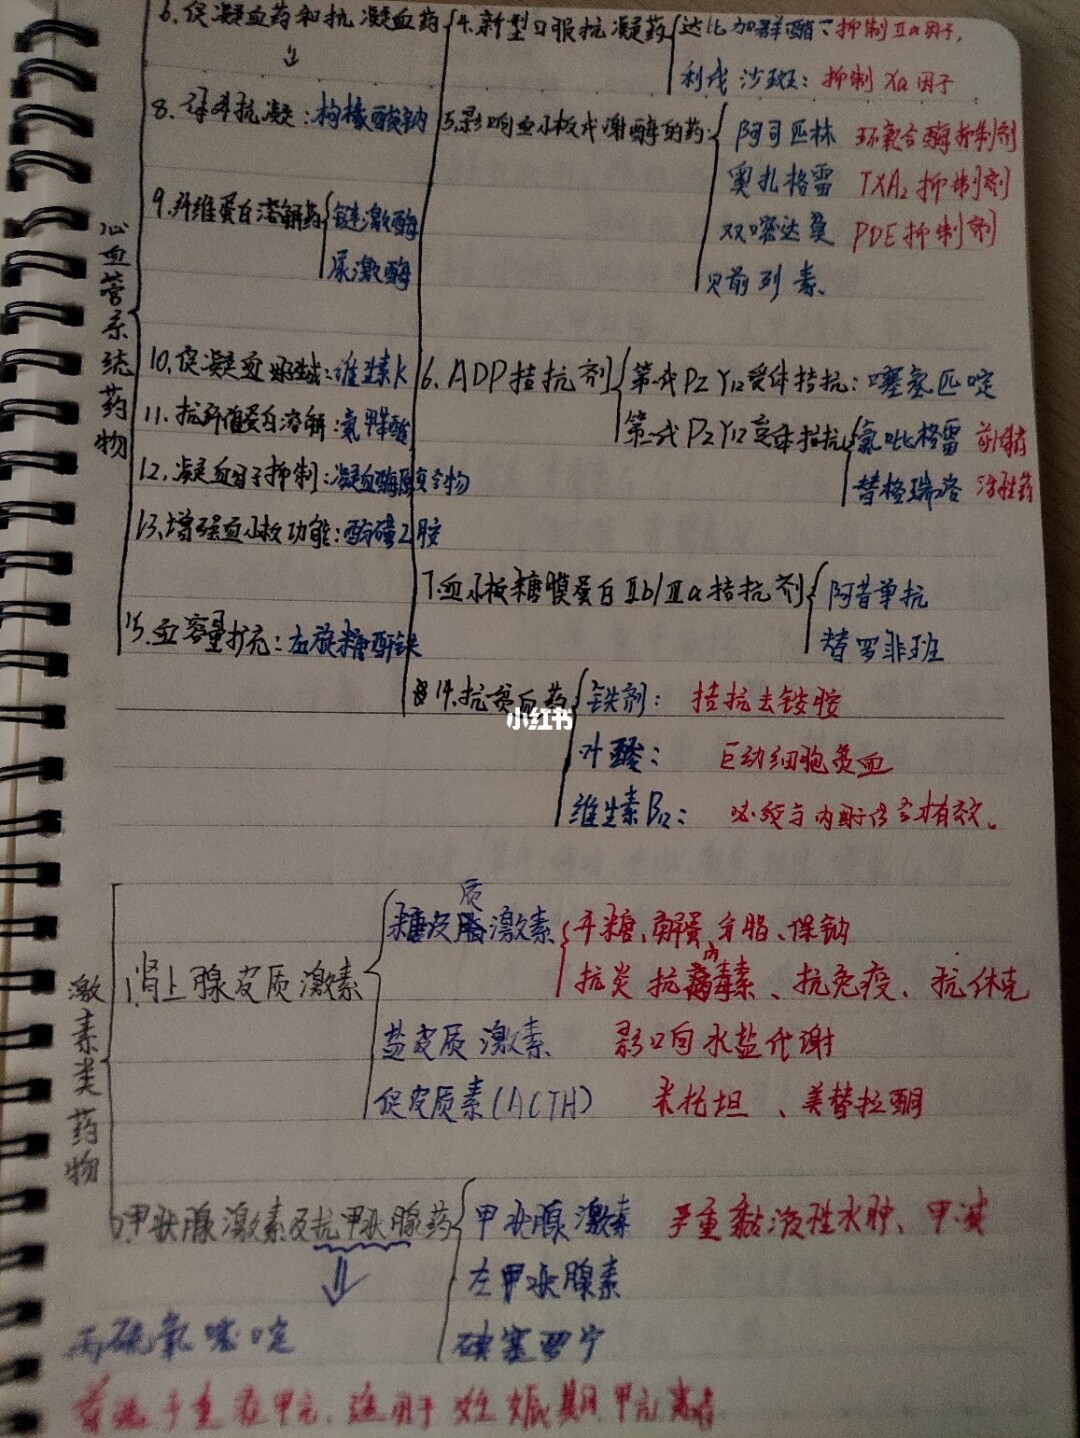 心血管系统药物
6.促凝血药和抗凝血药
8.体外抗凝：枸橼酸钠
9.纤维蛋白溶解药 链激酶
尿激酶
10.促凝血 生成：维生素K
11.抗纤维蛋白溶解：氨甲苯酸
12.凝血因子抑制：凝血酶原复合物
13.增强血小板功能：酚磺乙胺
15.血容量扩充：右旋糖酐铁
4.新型口服抗凝药 达比加群酯：抑制Ⅱa因子，
利伐沙班：抑制Xa因子
5.影响血小板代谢酶的药： 阿司匹林 环氧合酶抑制剂
奥扎格雷 TXA₂抑制剂
双嘧达莫 PDE抑制剂
贝前列素、
6.ADP拮抗剂 第一代P2Y12受体拮抗：噻氯匹啶
第二代P2Y12受体拮抗 氯吡格雷 前体药
替格瑞洛 活性药
7.血小板糖膜蛋白Ⅱb/Ⅲa拮抗剂 阿昔单抗
替罗非班
14.抗贫血药 铁剂： 拮抗去铁胺
叶酸： 巨幼细胞贫血
维生素B12： 必须与内因子结合才有效。
小红书
激素类药物
1.肾上腺皮质激素
糖皮质激素 升糖、解蛋、移脂、保钠
抗炎 抗内毒素、抗免疫、抗休克
盐皮质激素 影响水盐代谢
促皮质素(ACTH) 米托坦、美替拉酮
甲状腺激素及抗甲状腺药 甲状腺激素 严重黏液性水肿、甲减
左甲状腺素
碘塞罗宁
丙硫氧嘧啶
首选于重症甲亢，适用于妊娠期甲亢患者